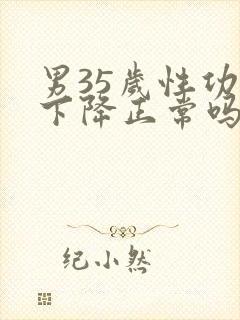 男35岁性功
下降正常吗
纪小然